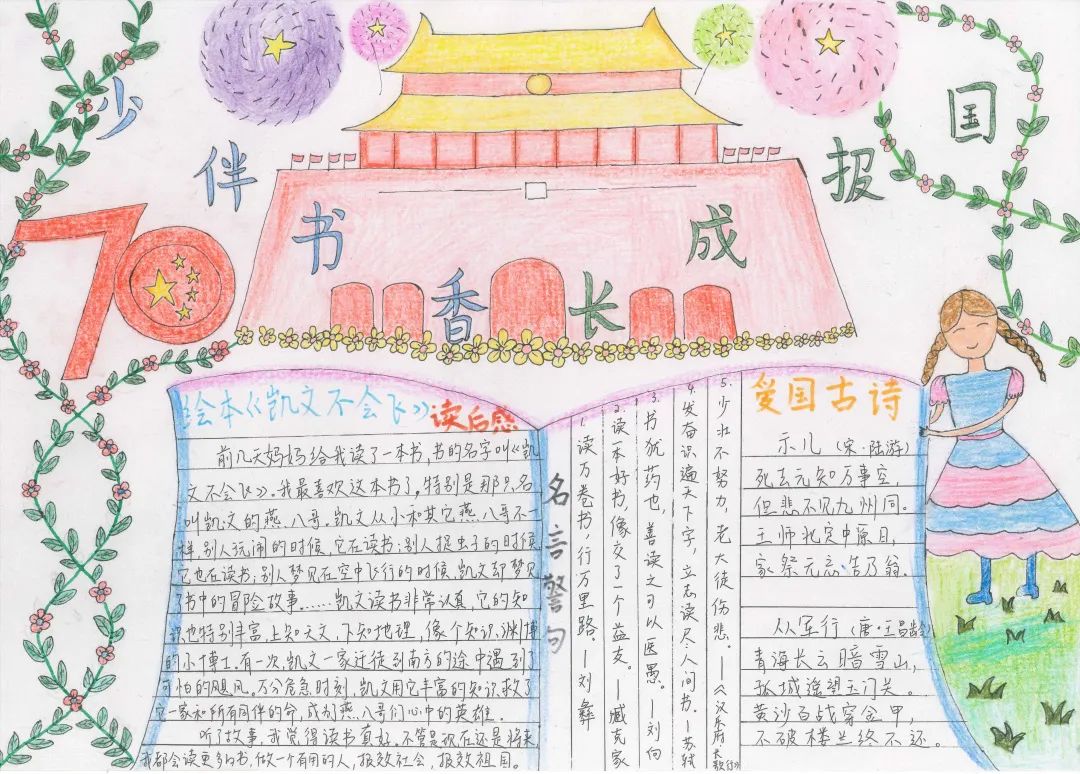 少伴书香长成报国
70
绘本《凯文不会飞》读后感
前几天妈妈给我读了一本书,书的名字叫《凯
文不会飞》。我最喜欢这本书了,特别是那只名
叫凯文的燕八哥。凯文从小和其它燕八哥不一
样,别人玩闹的时候,它在读书;别人捉虫子的时候
它也在读书;别人梦见在空中飞行的时候,凯文却梦见
了书中的冒险故事……凯文读书非常认真,它的知
识也特别丰富,上知天文,下知地理,像个知识渊博
的小博士。有一次,凯文一家迁徙到南方的途中遇到了
可怕的飓风。万分危急时刻,凯文用它丰富的知识救了
它一家和所有同伴的命,成为燕八哥们心中的英雄。
听了故事,我觉得读书真好。不管是现在还是将来,
我都会读更多的书,做一个有用的人,报效社会,报效祖国。
名言警句
1.读万卷书,行万里路。—刘彝
2.读一本好书,像交了一个益友。—臧克家
3.书犹药也,善读之可以医愚。—刘向
4.发奋识遍天下字,立志读尽人间书。—苏轼
5.少壮不努力,老大徒伤悲。—《汉乐府·长歌行》
爱国古诗
示儿(宋·陆游)
死去元知万事空,
但悲不见九州同。
王师北定中原日,
家祭无忘告乃翁。
从军行(唐·王昌龄)
青海长云暗雪山,
孤城遥望玉门关。
黄沙百战穿金甲,
不破楼兰终不还。